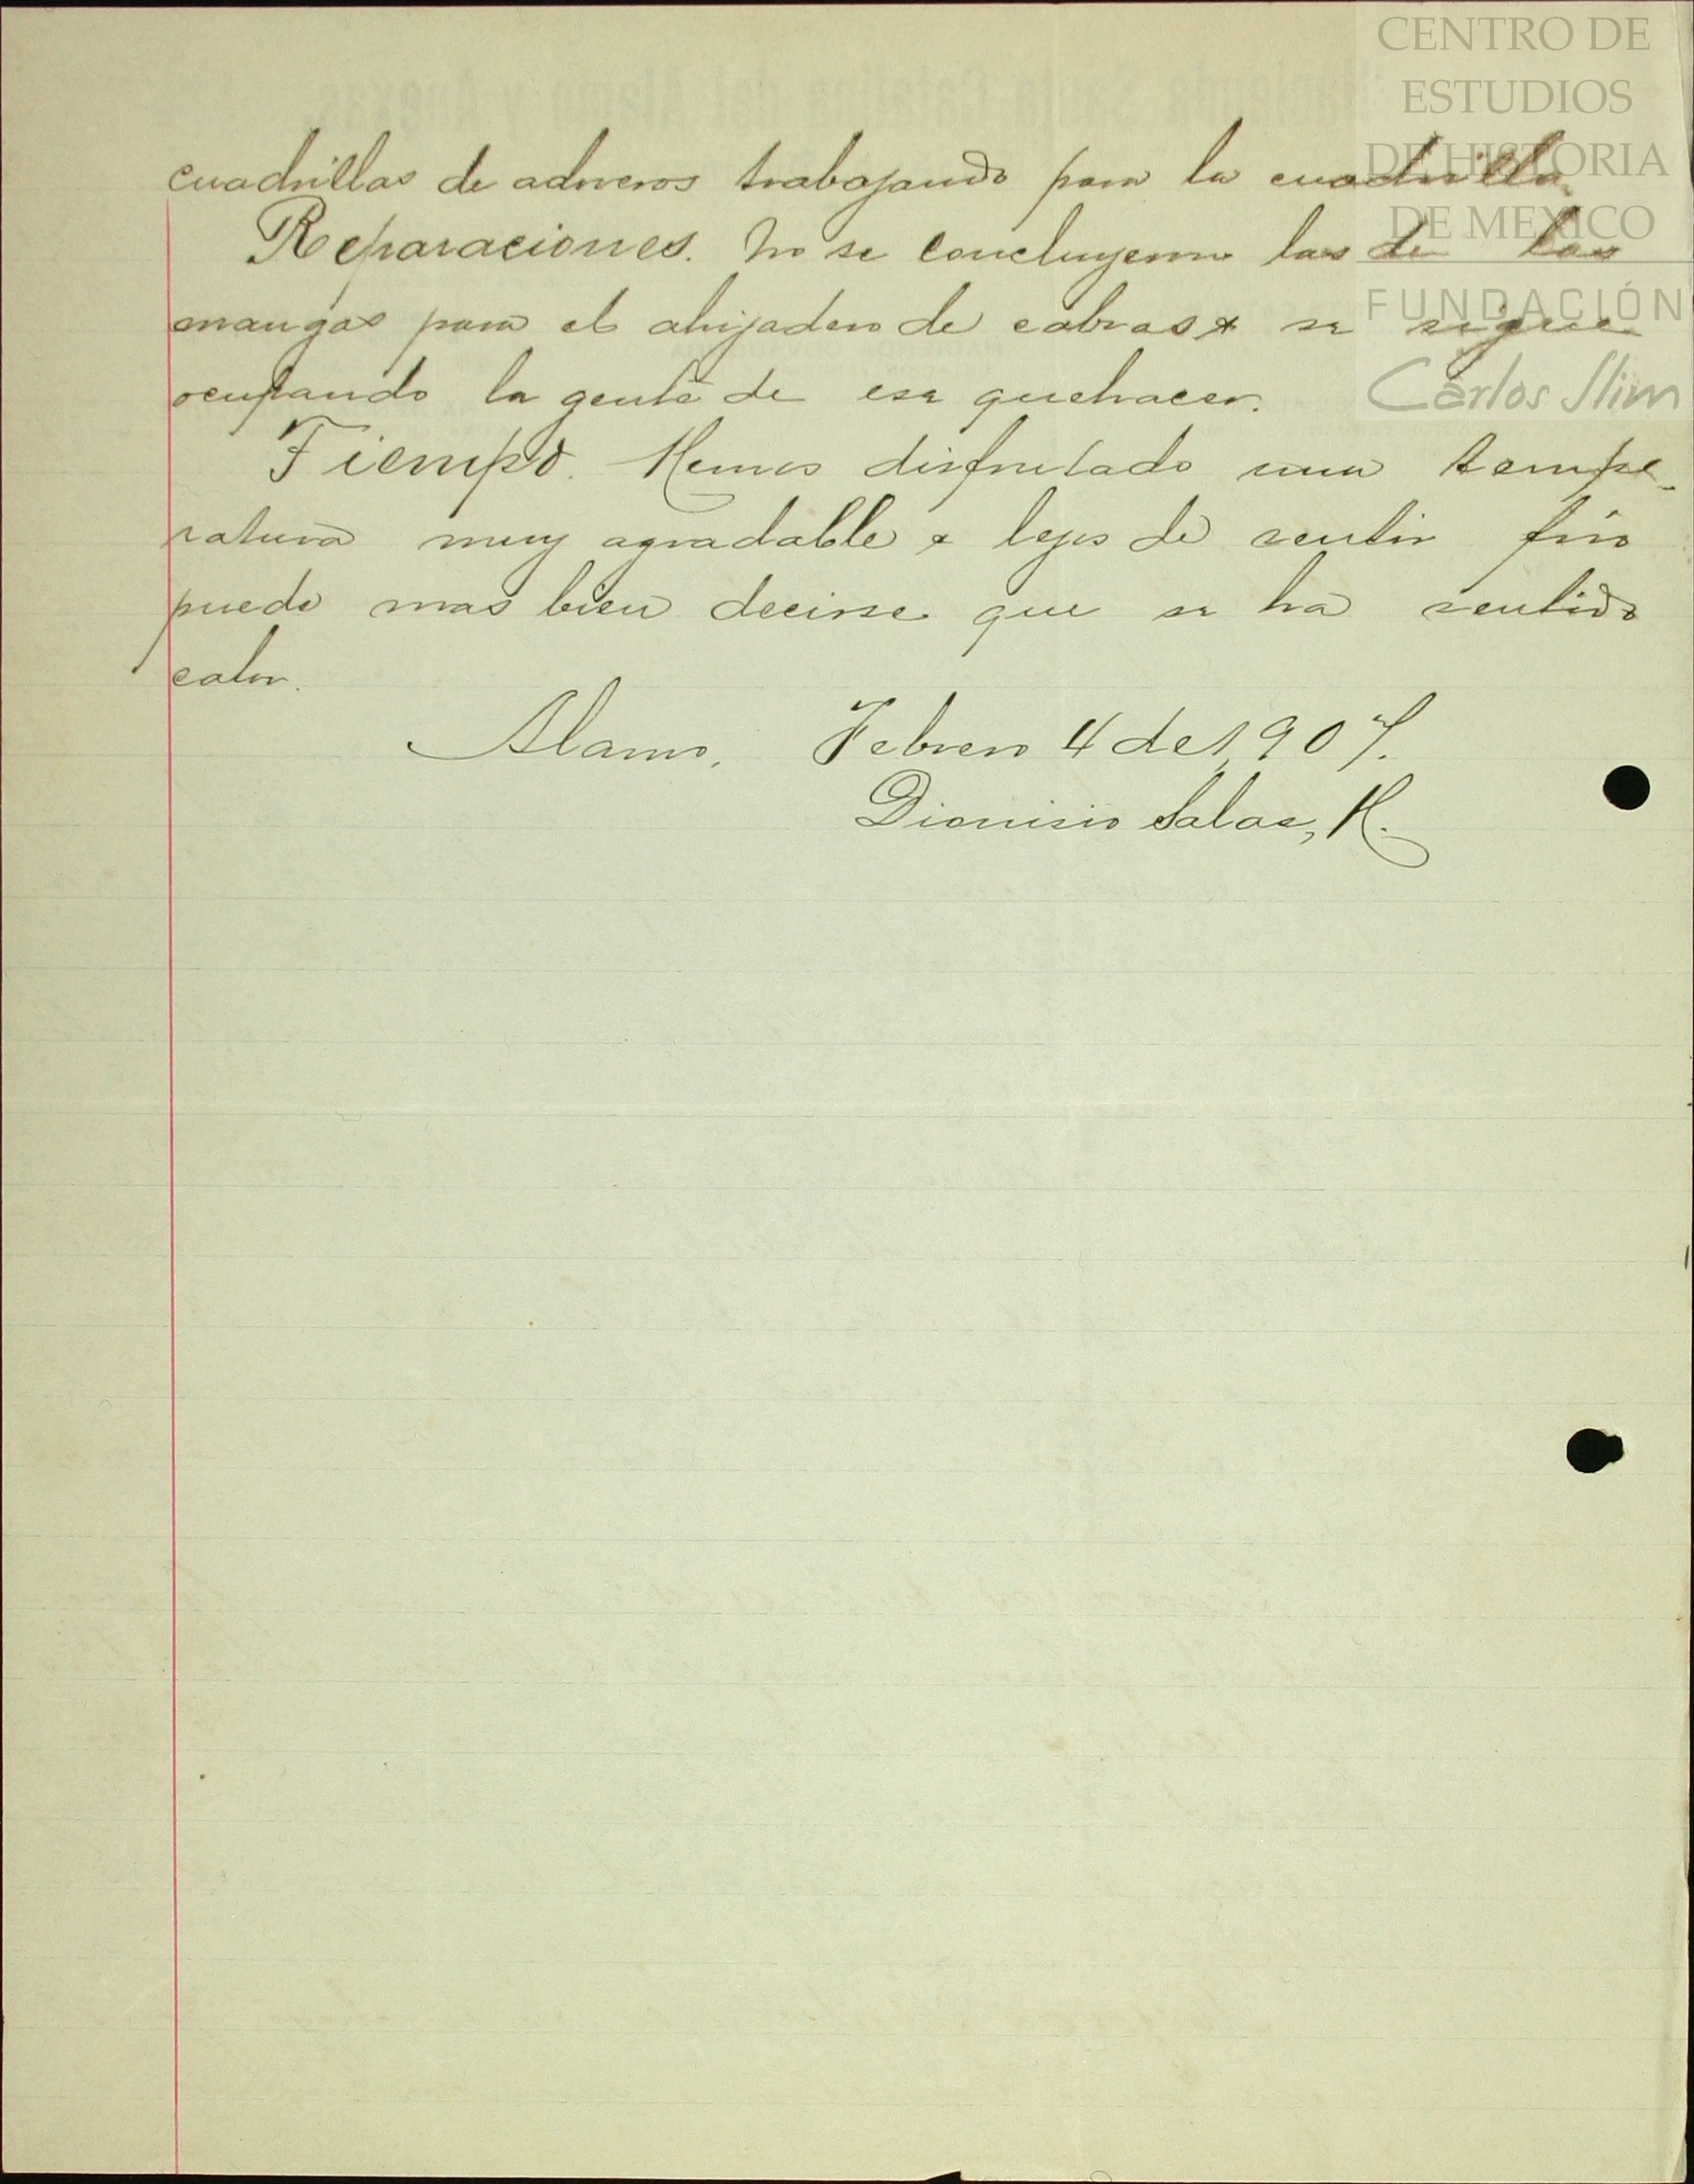 CENTRO DE
ESTUDIOS
DE HISTORIA
DE MEXICO
FUNDACIÓN
Carlos Slim
Hacienda Santa Catalina del Alamo y Anexas
cuadrillas de adveros trabajando para la cuadrilla.
Reparaciones. No se concluyeron las de las
mangas para el ahijadero de cabras & se sigue
ocupando la gente de ese quehacer.
Tiempo. Hemos disfrutado una tempe-
ratura muy agradable & lejos de sentir frío
puede mas bien decirse que se ha sentido
calor.
Alamo, Febrero 4 de 1907.
Dionisio Salas, H.